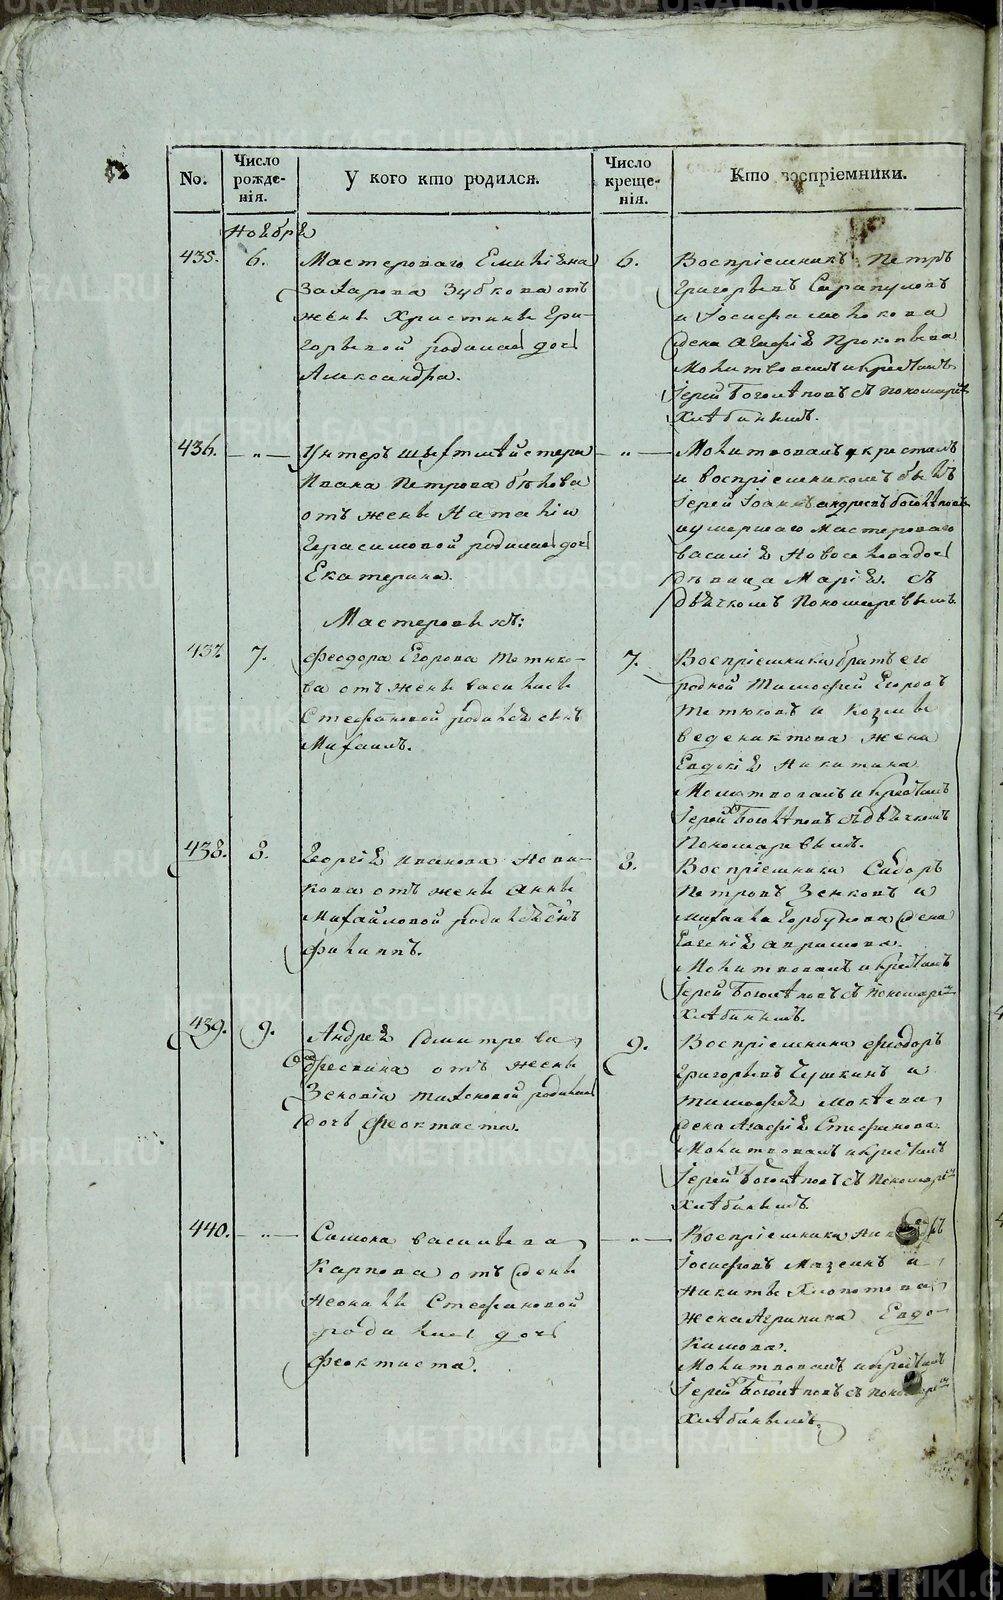 No.
Число рожде-нія.
У кого кто родился.
Число креще-нія.
Кто воспріемники.
Ноября
435.
6.
Мастероваго Емиліяна
Захарова Зубкова отъ
жены Христины Гри-
горьевой родилась дочь
Александра.
6.
Воспріемникъ Петръ
Григорьевъ Сарапуловъ
и Іосифа
жена Агафія Прокопьева
Молитвовалъ и крестилъ
Іерей Боголѣповъ съ пономаремъ
Хлѣбинымъ.
436.
— „ —
Унтеръ шихтмейстера
Ивана Петрова Бѣлова
отъ жены Наталіи
Герасимовой родилась дочь
Екатерина.
— „ —
Молитвовалъ и крестилъ
и воспріемникомъ былъ
Іерей Іоаннъ Андреевъ Боголѣповъ
и умершаго Мастероваго
Василія Новоселова дочь
дѣвица Марія. съ
дьячкомъ Пономаревымъ.
Мастеровыхъ:
437.
7.
Феодора Егорова Тетюко-
ва отъ жены Василисы
Стефановой родился сынъ
Михаилъ.
7.
Воспріемники братъ его
родной Тимофей Егоровъ
Тетюковъ и Козмы
Веденихтова жена
Евдокія Никитина
Молитвовалъ и крестилъ
Іерей Боголѣповъ съ дьячкомъ
Пономаревымъ.
438.
8.
Георгія Иванова Нови-
кова отъ жены Анны
Михайловой родился сынъ
Филиппъ.
8.
Воспріемники Сидоръ
Петровъ Зенковъ и
Михаила Горбунова жена
Евгенія Абрамова.
Молитвовалъ и крестилъ
Іерей Боголѣповъ съ Пономаремъ
Хлѣбинымъ.
439.
9.
Андрея Дмитрева
отъ жены
Зеновіи Тихоновой родилась
дочь Феоктиста.
9.
Воспріемники Феодоръ
Григорьевъ Чушкинъ и
Тимофея Моктева
жена Агафія Стефанова.
Молитвовалъ и крестилъ
Іерей Боголѣповъ съ Пономаремъ
Хлѣбинымъ.
440.
— „ —
Симона Васильева
Карпова отъ жены
Неонилы Стефановой
родилась дочь
Феоктиста.
— „ —
Воспріемники
Іосифовъ Мазеинъ и
Никиты Хлопотова
жена Агрипина Евдо-
кимова.
Молитвовалъ и крестилъ
Іерей Боголѣповъ съ пономаремъ
Хлѣбинымъ.
METRIKI.GASO-URAL.RU